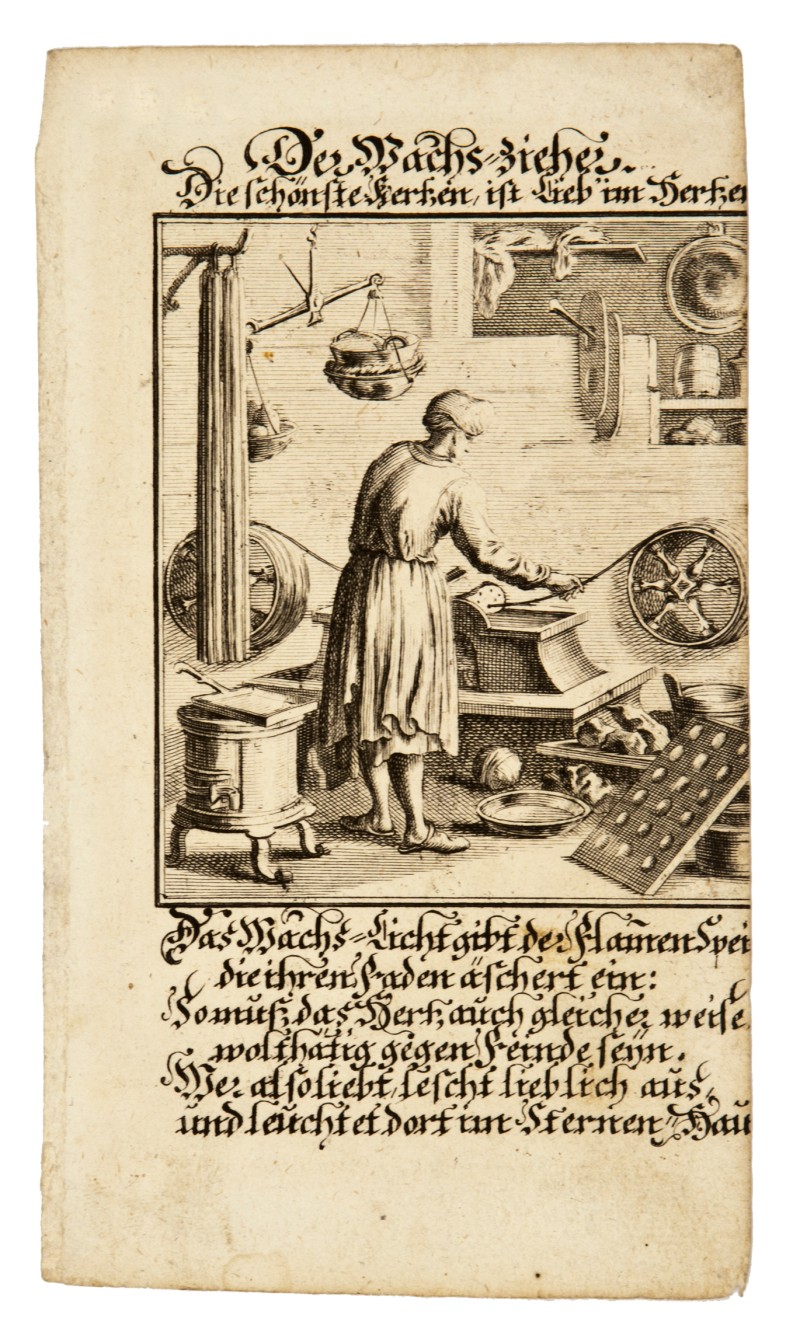 Der Wachs-zieher.
Die schönste Kertzen, ist Lieb' im Hertzen
Das Wachs-Licht gibt der Flam̃en Spei
die ihren Faden äschert ein:
So muß das Hertz auch gleicher weise
wolthätig gegen Feinde seyn.
Wer also liebt, lescht lieblich aus,
und leuchtet dort im Sternen-Hau